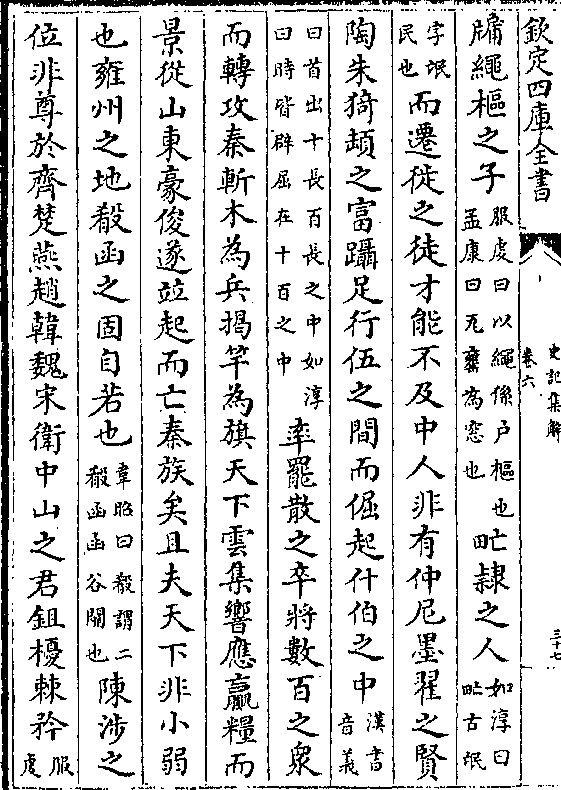 欽定四庫全書
史記集解
卷六
三十七
牖繩樞之子
服虔曰以繩係戶樞也
孟康曰瓦甕為窓也
甿隷之人
如淳曰
甿古氓
字氓
民也
而遷徙之徒才能不及中人非有仲尼墨翟之賢
陶朱猗頓之富躡足行伍之間而倔起什伯之中
漢書
音義
曰首出十長百長之中如淳
曰時皆辟屈在十百之中
率罷散之卒將數百之衆
而轉攻秦斬木為兵揭竿為旗天下雲集響應贏糧而
景從山東豪俊遂竝起而亡秦族矣且夫天下非小弱
也雍州之地殽函之固自若也
韋昭曰殽謂二
殽函函谷關也
陳涉之
位非尊於齊楚燕趙韓魏宋衛中山之君鉏櫌棘矜
服
虔